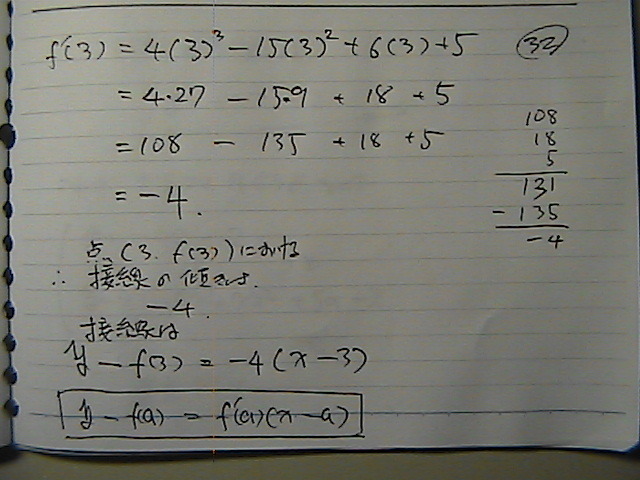 f'(3) = 4(3)³ - 15(3)² + 6(3) + 5
32
= 4・27 - 15・9 + 18 + 5
= 108 - 135 + 18 + 5
= -4.
108
18
5
131
- 135
-4
点(3, f(3))における
∴ 接線の傾きは.
-4.
接線は
y - f(3) = -4(x - 3)
y - f(a) = f'(a)(x - a)